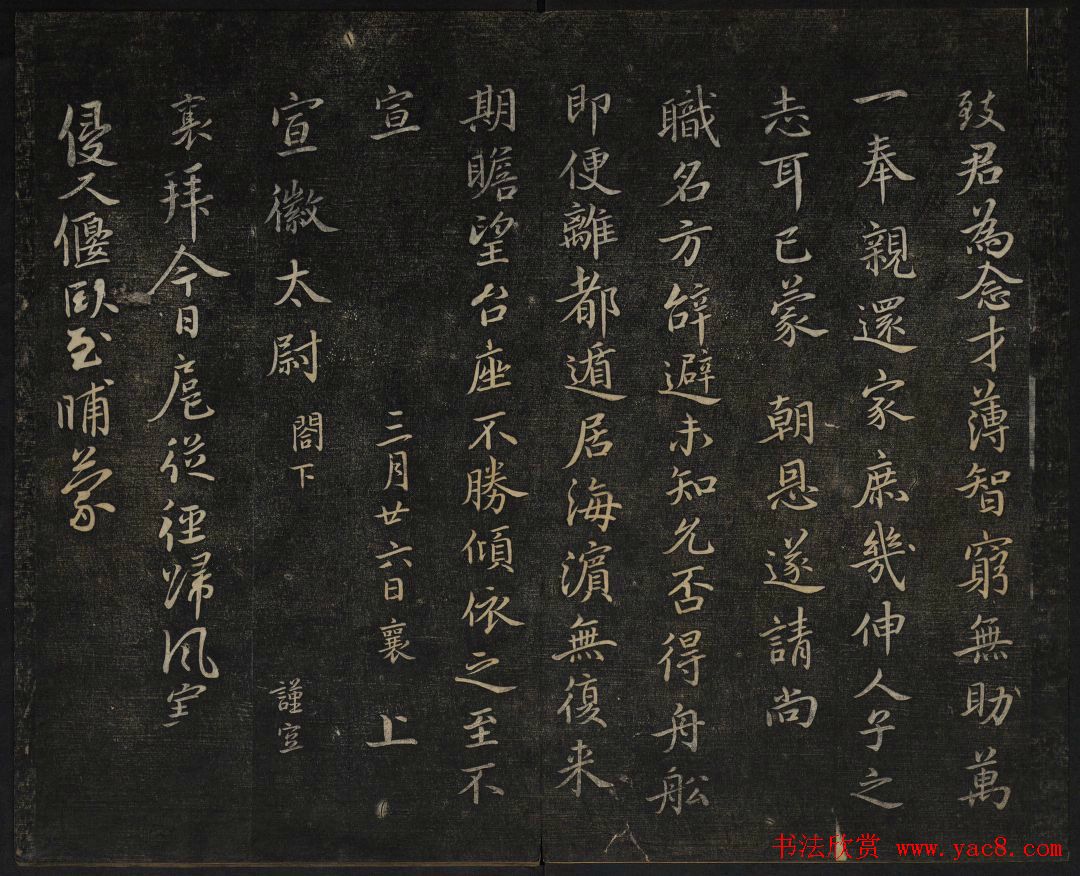 致君為念才薄智窮無助萬
一奉親還家庶幾伸人子之
志耳已蒙 朝恩遂請尚
職名方辭避未知允否得舟舩
即便離都遁居海濵無復来
期瞻望台座不勝傾依之至不
宣 三月廿六日襄 上
宣徽太尉 閤下 謹空
襄拜今日扈從徑歸風室
侵人偃臥至晡蒙
书法欣赏 www.yac8.com